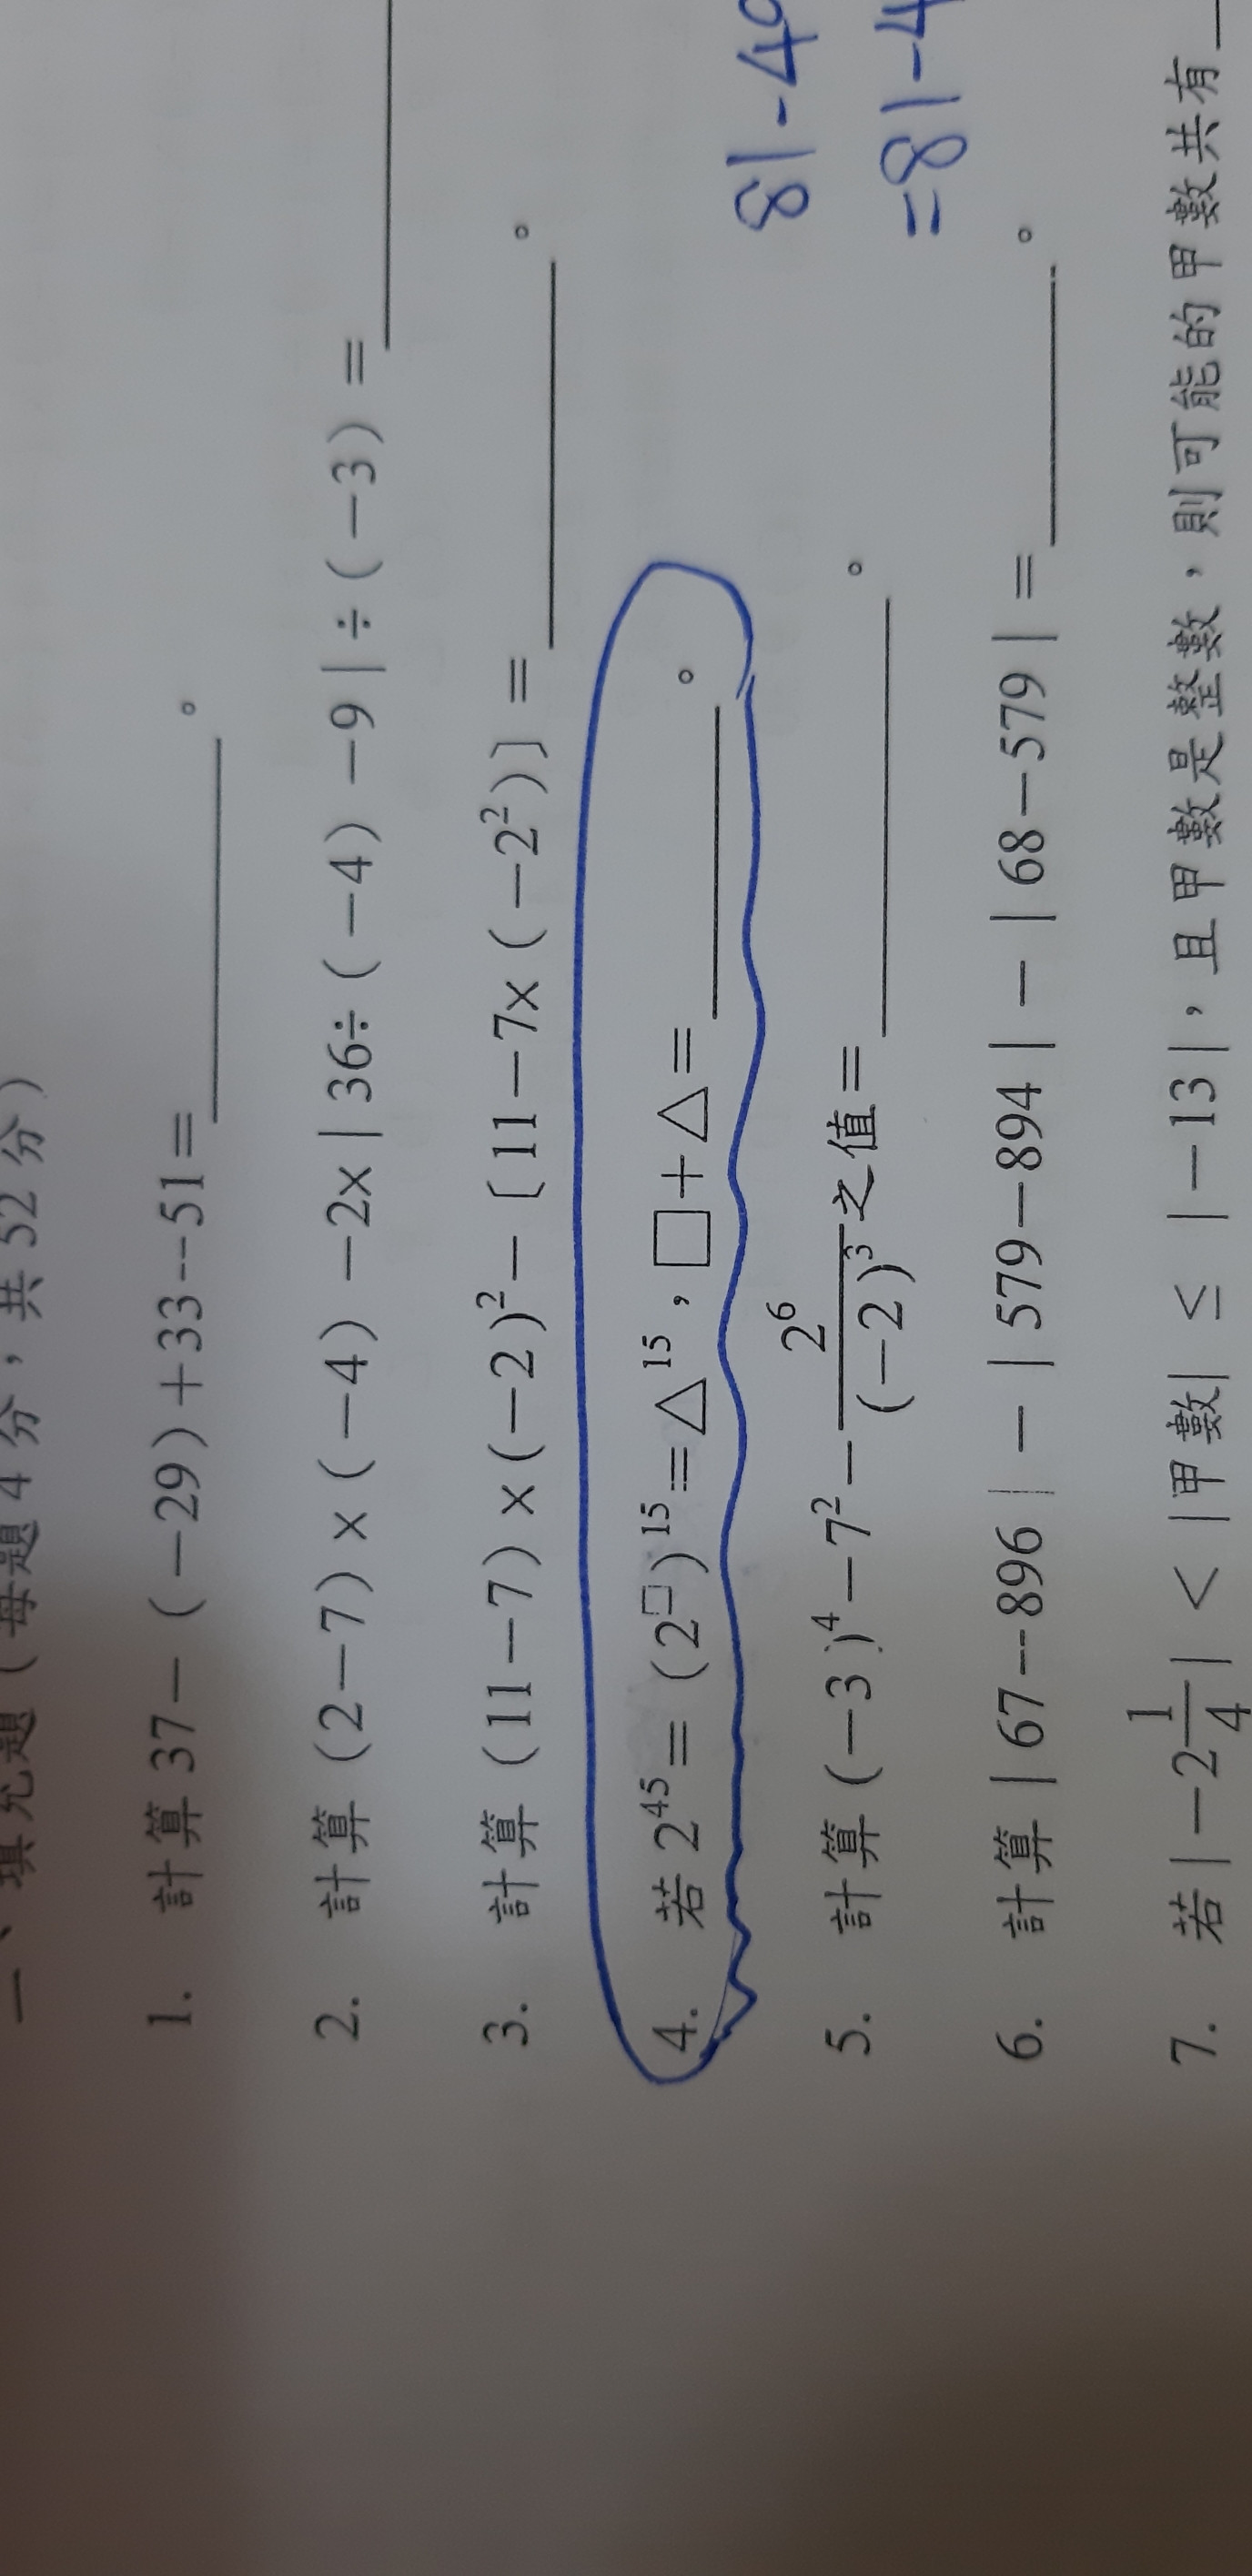 一、填充題（每題4分，共52分）
1. 計算 37－（－29）＋33－－51＝＿＿＿。
2. 計算（2－7）×（－4）－2×｜36÷（－4）－9｜÷（－3）＝＿＿＿
3. 計算（11－7）×(－2)²－〔11－7×（－2²）〕＝＿＿＿。
4. 若 2⁴⁵＝（2^□）¹⁵＝△¹⁵，□＋△＝＿＿＿。
81-49
5. 計算（－3)⁴－7²－2⁶/(－2)³之值＝＿＿＿。
=81-4
6. 計算｜67－－896｜－｜579－894｜－｜68－579｜＝＿＿＿。
7. 若｜－2 1/4｜＜｜甲數｜≤｜－13｜，且甲數是整數，則可能的甲數共有＿